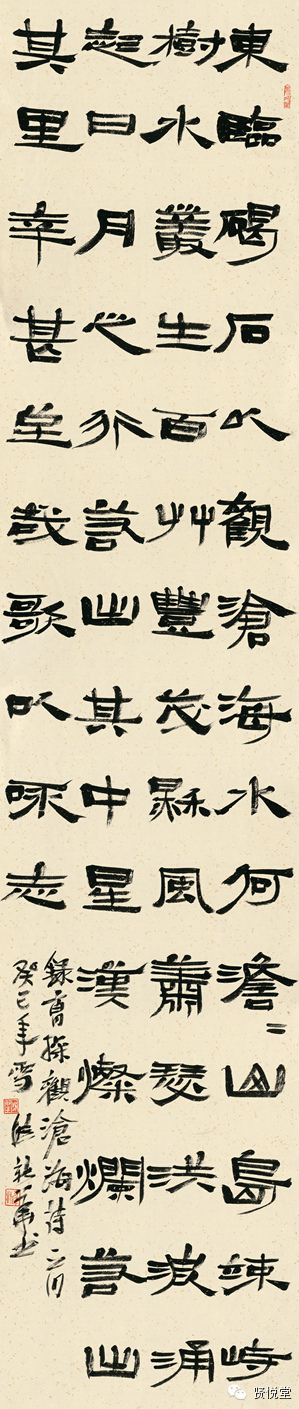 東臨碣石以觀滄海水何澹=山島竦峙
樹水叢生百艸豐茂秌風蕭瑟洪波涌
起日月之行若出其中星漢燦爛若出
其里幸甚至哉歌以咏志
錄曹操觀滄海詩
癸巳年雪 書
贤悦堂